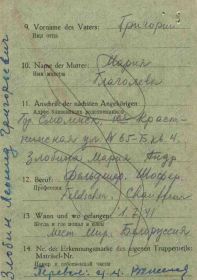 9. Vorname des Vaters: Григорий
Имя отца
10. Name der Mutter: Мария
Имя матери Глаголева
11. Anschrift der nächsten Angehörigen:
Адрес ближайших родственников
гор. Смоленск,
ул. № 65-Б кв. 4.
Злобина Мария Андр.
12. Beruf: Фельдшер. Шофер.
Профессия Feldscher. Chauffeur
13. Wann und wo gefangen: 1.7.41
Когда и где взяты в плен:
мест. Мир. Белоруссия
14. Nr. der Erkennungsmarke des eigenen Truppenteils:
Злобин Леонид Григорьевич